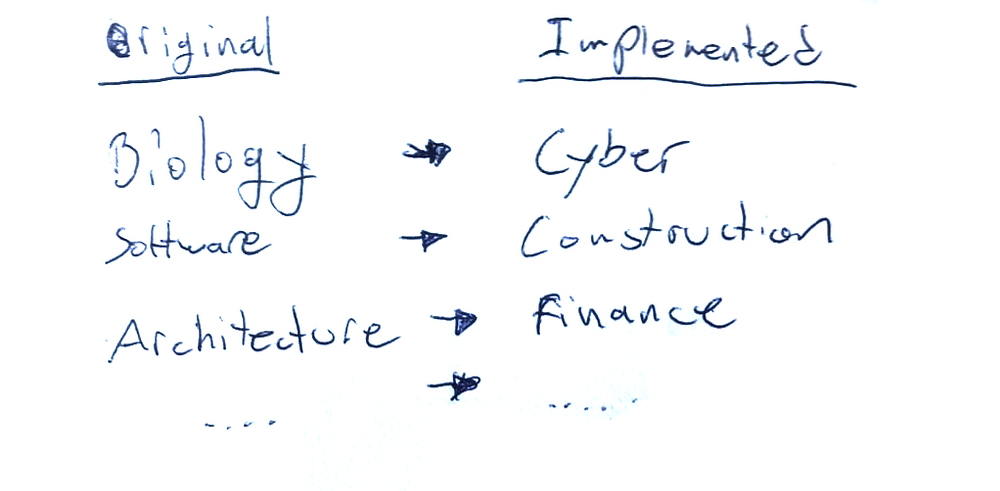 Original Implemented
Biology → Cyber
Software → Construction
Architecture → Finance
.... → .....